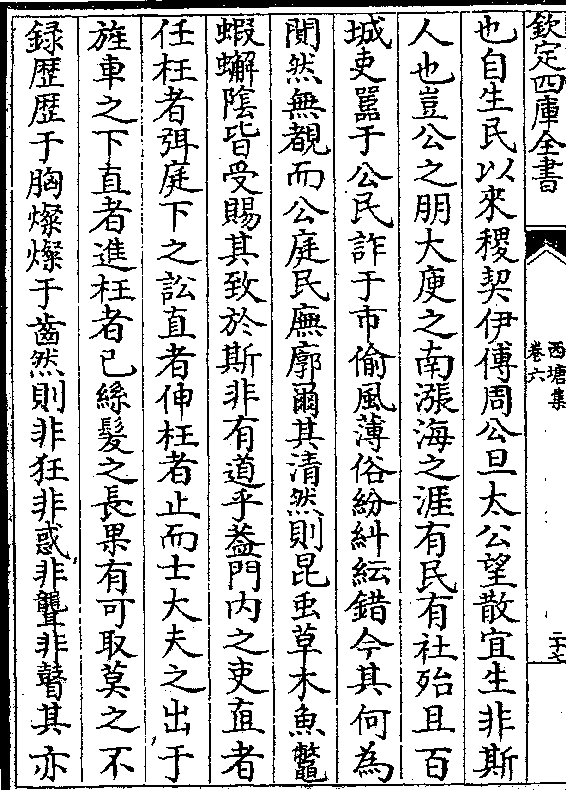 欽定四庫全書
西塘集
卷六
二十七
也自生民以來稷契伊傅周公旦太公望散宜生非斯
人也豈公之朋大庾之南漲海之涯有民有社殆且百
城吏囂于公民詐于市偷風薄俗紛糾紜錯今其何為
閴然無覩而公庭民廡廓爾其清然則昆虫草木魚鼈
蝦蠏陰皆受賜其致於斯非有道乎葢門内之吏直者
任枉者弭庭下之訟直者伸枉者止而士大夫之出于
旌車之下直者進枉者已絲髮之長果有可取莫之不
録歴歴于胸燦燦于齒然則非狂非惑非聾非瞽其亦